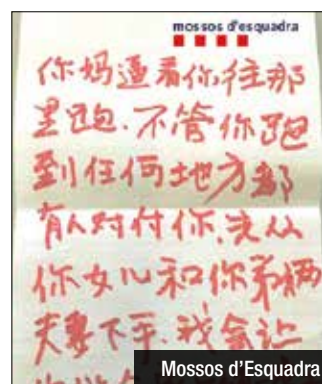 mossos d'esquadra
你妈逼着你往那
里跑.不管你跑
到任何地方都
有人对付你,先从
你女儿和你弟俩
夫妻下手.我会让
Mossos d'Esquadra